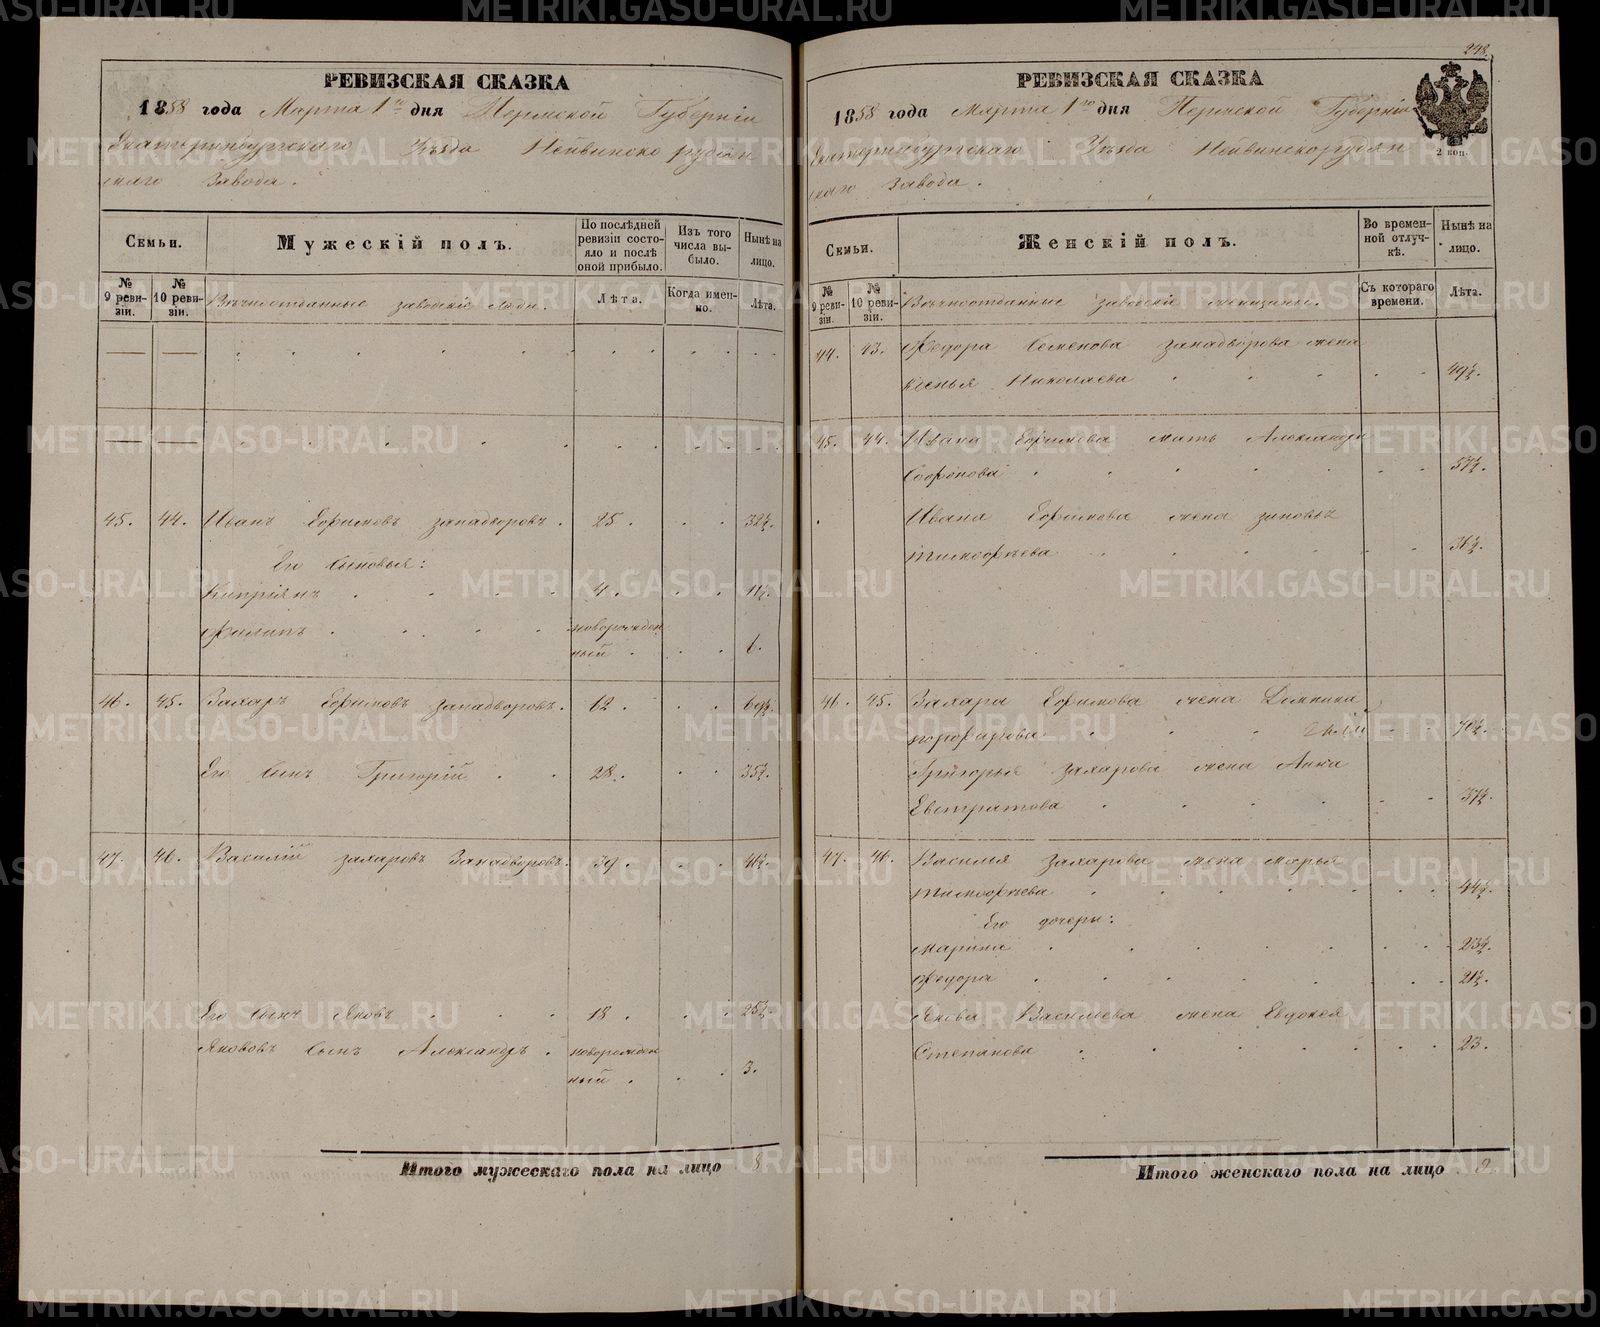 248.
РЕВИЗСКАЯ СКАЗКА
1858 года Марта 1го дня Пермской Губерніи
Екатеринбургскаго Уѣзда Нейвинско рудян
скаго Завода.
Семьи.
Мужескій полъ.
По послѣдней ревизіи состояло и послѣ оной прибыло.
Изъ того числа выбыло.
Нынѣ на лицо.
№ 9 ревизіи.
№ 10 ревизіи.
Вѣчноотданные заводскіе люди.
Лѣта.
Когда именно.
Лѣта.
45. 44. Иванъ Ефимовъ Западворовъ. 25. 32½.
Его сыновья:
Кипріянъ 4. 11½.
Филипъ новорожден
ный 6.
46. 45. Захаръ Ефимовъ Западворовъ. 62. 69½.
Его сынъ Григорій 28. 35½.
47. 46. Василій Захаровъ Западворовъ. 39. 46½.
Его сынъ Яковъ 18. 25½.
Якововъ сынъ Александръ новорожден
ный 3.
Итого мужескаго пола на лицо 8
РЕВИЗСКАЯ СКАЗКА
1858 года Марта 1го дня Пермской Губерніи
Екатеринбургскаго Уѣзда Нейвинскорудян
скаго Завода.
2 коп.
Семьи.
Женскій полъ.
Во временной отлучкѣ.
Нынѣ на лицо.
№ 9 ревизіи.
№ 10 ревизіи.
Вѣчноотданные заводскія женщины.
Съ котораго времени.
Лѣта.
44. 43. Федора Семенова Западворова жена
Ксенья Николаева 49½.
45. 44. Ивана Ефимова мать Александра
Софонова 57½.
Ивана Ефимова жена Зиновья
Тимофѣева
46. 45. Захара Ефимова жена Домнина
Порфирова 70½.
Григорья Захарова жена Анна
Евстратова 37½.
47. 46. Василья Захарова жена Марья
Тимофѣева 44½.
Его дочери:
Марина 23½.
Федора 21½.
Якова Васильева жена Евдокея
Степанова 23.
Итого женскаго пола на лицо
METRIKI.GASO-URAL.RU